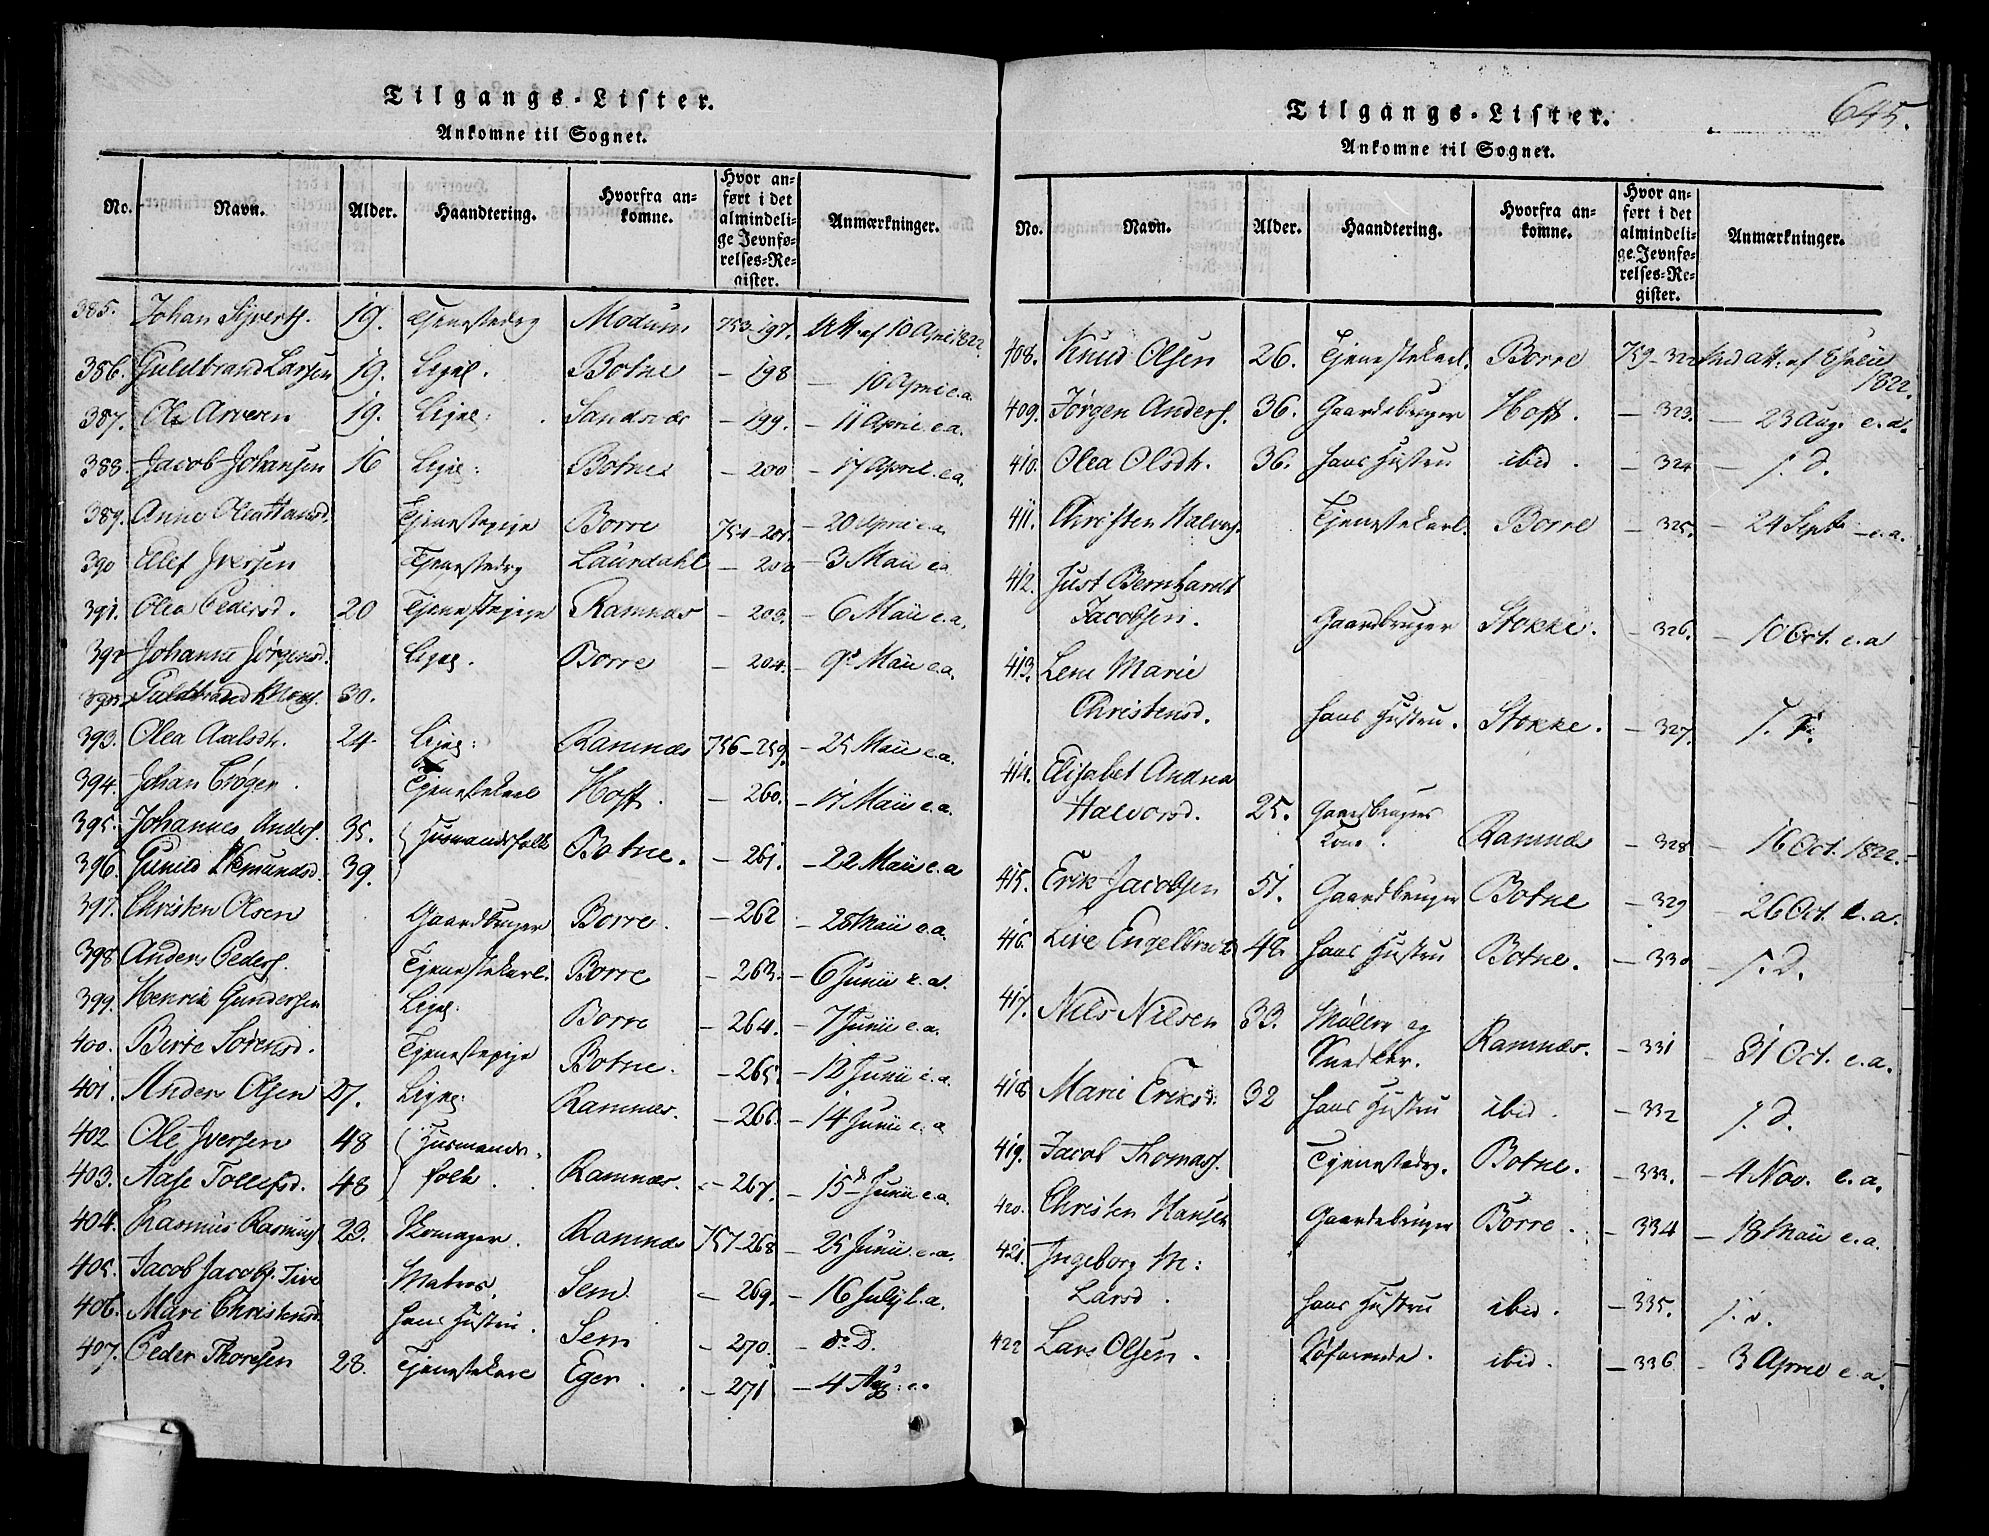 Tilgangs-Lister.
Ankomne til Sognet.
No. Navn. Alder. Haandtering. Hvorfra ankomne. Hvor anført i det almindelige Jevnførelses-Register. Anmærkninger.
385. Johan Sijverts. 19. Tjenestedrg Modum 753-197. Att. af 10 April 1822.
386. Guldbrand Larsen 19. Ligel. Botne - 198 - 10 April e.a.
387. Ole Arvesen 19. Ligel: Sandsvær - 199. - 11 April e.a.
388. Jacob Johansen 16 Ligel: Botne - 200 - 17 April e.a.
389. Anne Olea Hansd. Tjenestepige Borre 754-201. - 20 April e.a.
390 Elef Iversen Tjenestedrg Laurdahl - 202 - 3 Maii e.a.
391. Olea Pedersd. 20 Tjenestepige Ramnæs - 203. - 6 Maii e.a.
392 Johanne Jørgensd. Ligel. Borre - 204. - 9d Maii e.a.
Guldbrand Mons. 30.
393. Olea Axelsdr. 24. Ligel: Ramnæs 756-259. - 25 Maii e.a.
394. Johan Crøger. Tjenestekarl Hoff. - 260. - 17 Maii e.a.
395. Johannes Anders. 35. Huusmandsfolk Botne. - 261. - 22 Maii e.a
396. Gunild Asmundsd. 39.
397. Christen Olsen Gaardbruger Borre. - 262 - 28 Maii e.a.
398 Anders Peders. Tjenestekarl. Borre - 263. - 6 Junii e.a.
399. Henrik Gundersen Ligel: Borre - 264. - 7 Junii e.a.
400. Birte Sørensd. Tjenestepige Botne. - 265. - 12 Junii e.a.
401. Anders Olsen 27. Ligel: Ramnæs. - 266. - 14 Junii e.a
402 Ole Iversen 48 Huusmands-
403. Aase Tollefsd. 48 folk. Ramnæs. - 267. - 15d Junii e.a.
404. Rasmus Rasmus. 23. Skomager. Ramnæs 757-268 - 25 Junii e.a.
405. Jacob Jacobs. Tive Matros. Sem - 269. - 16 July e.a.
406. Mari Christensd. hans Hustru. Sem - 270. - do D.
407. Peder Thoresen 28. Tjenestekarl Eger. - 271 - 4 Aug: e.a.
645.
Tilgangs-Lister.
Ankomne til Sognet.
No. Navn. Alder. Haandtering. Hvorfra ankomne. Hvor anført i det almindelige Jevnførelses-Register. Anmærkninger.
408. Knud Olsen 26. Tjenestekarl. Borre 759-322 Med att. af
1822.
409. Jørgen Anders. 36. Gaardbruger Hoff. - 323. - 23 Aug. e.a.
410. Olea Olsdr. 36. hans Hustru ibid. - 324 - s. D.
411. Christen Halvors. Tjenestekarl. Borre - 325. - 24 Sept. - e.a.
412. Just Bernhardt
Jacobsen. Gaardbruger Stokke. - 326. - 10 Oct. e.a
413. Lene Marie
Christensd. hans Hustru. Stokke. - 327. s. D.
414. Elisabet Andrea
Halvorsd. 25. Gaardbrugers
Kone. Ramnæs - 328 - 16 Oct. 1822.
415. Erik Jacobsen 51. Gaardbruger Botne - 329 - 26 Oct. e.a.
416. Live Engelbretsd 42. hans Hustru Botne. - 330 - s. D.
417. Nils Nilsen 33. Møller og
Snedker. Ramnæs. - 331 - 31 Oct. e.a.
418 Marie Eriksd: 32 hans Hustru ibid. - 332 s. D.
419. Jacob Thomas. Tjenestedrg. Botne. - 333. - 4 Nov. e.a.
420. Christen Hansen Gaardbruger Borre. - 334 - 18 Maii e.a.
421. Ingeborg M:
Larsd. hans Hustru ibid. - 335. s. D.
422 Lars Olsen. Søfarende. ibid. - 336 - 3 April e.a.